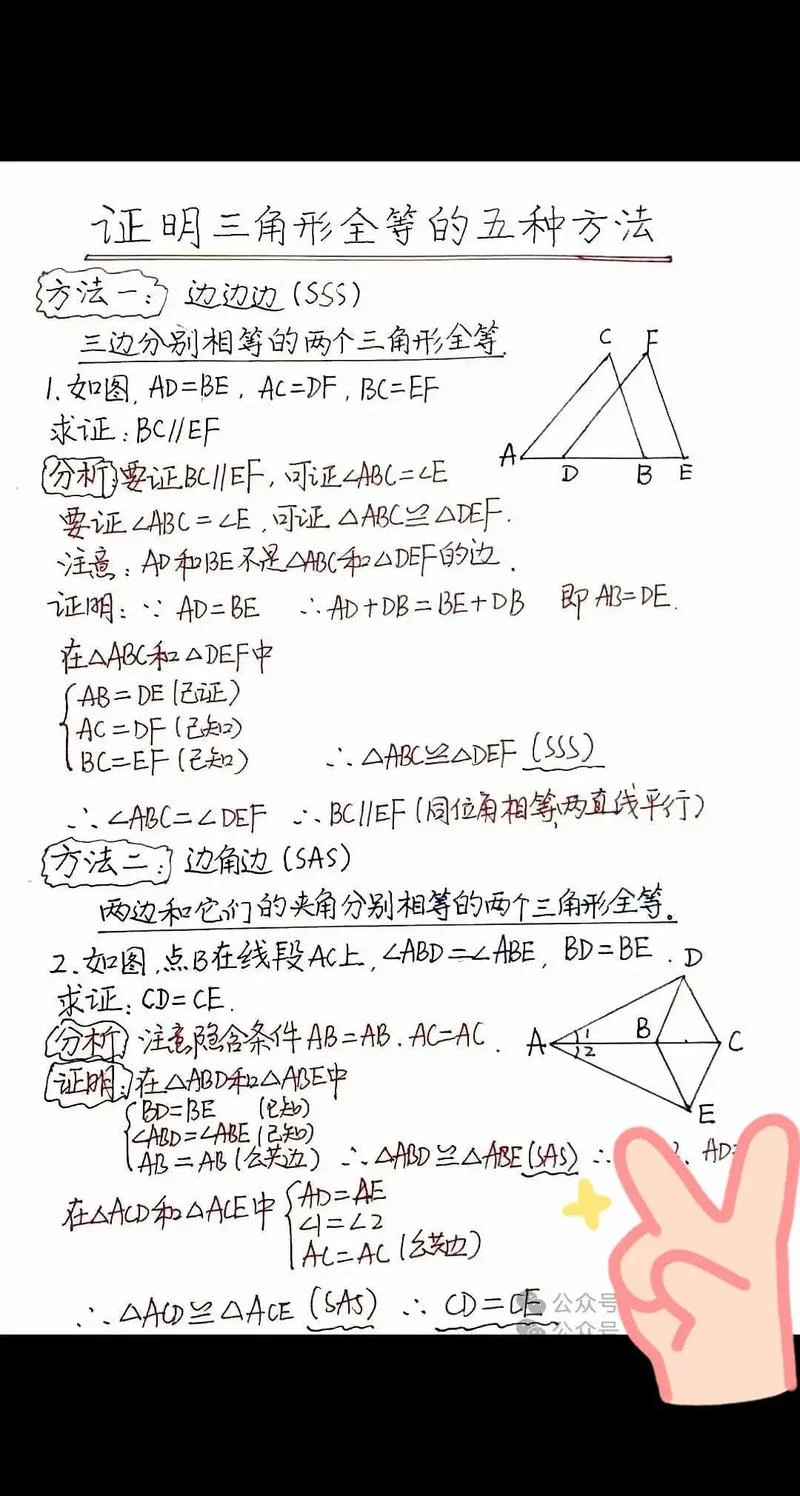 证明三角形全等的五种方法
方法一: 边边边(SSS)
三边分别相等的两个三角形全等.
1.如图, AD=BE, AC=DF, BC=EF
求证:BC∥EF
C F
A D B E
分析:要证BC∥EF,可证∠ABC=∠E
要证∠ABC=∠E,可证△ABC≌△DEF.
注意:AD和BE不是△ABC和△DEF的边.
证明:∵ AD=BE ∴AD+DB=BE+DB 即AB=DE.
在△ABC和△DEF中
AB=DE(已证)
AC=DF(已知)
BC=EF(已知) ∴△ABC≌△DEF(SSS)
∴∠ABC=∠DEF ∴BC∥EF(同位角相等,两直线平行)
方法二: 边角边(SAS)
两边和它们的夹角分别相等的两个三角形全等.
2.如图,点B在线段AC上,∠ABD=∠ABE, BD=BE.
求证:CD=CE.
D
A 1 2 B C
E
分析 注意隐含条件AB=AB.AC=AC.
证明:在△ABD和△ABE中
BD=BE (已知)
∠ABD=∠ABE(已知)
AB=AB(公共边) ∴△ABD≌△ABE(SAS) ∴ 2、AD=
在△ACD和△ACE中
AD=AE
∠1=∠2
AC=AC(公共边)
∴△ACD≌△ACE(SAS) ∴CD=CE
公众号
公众号